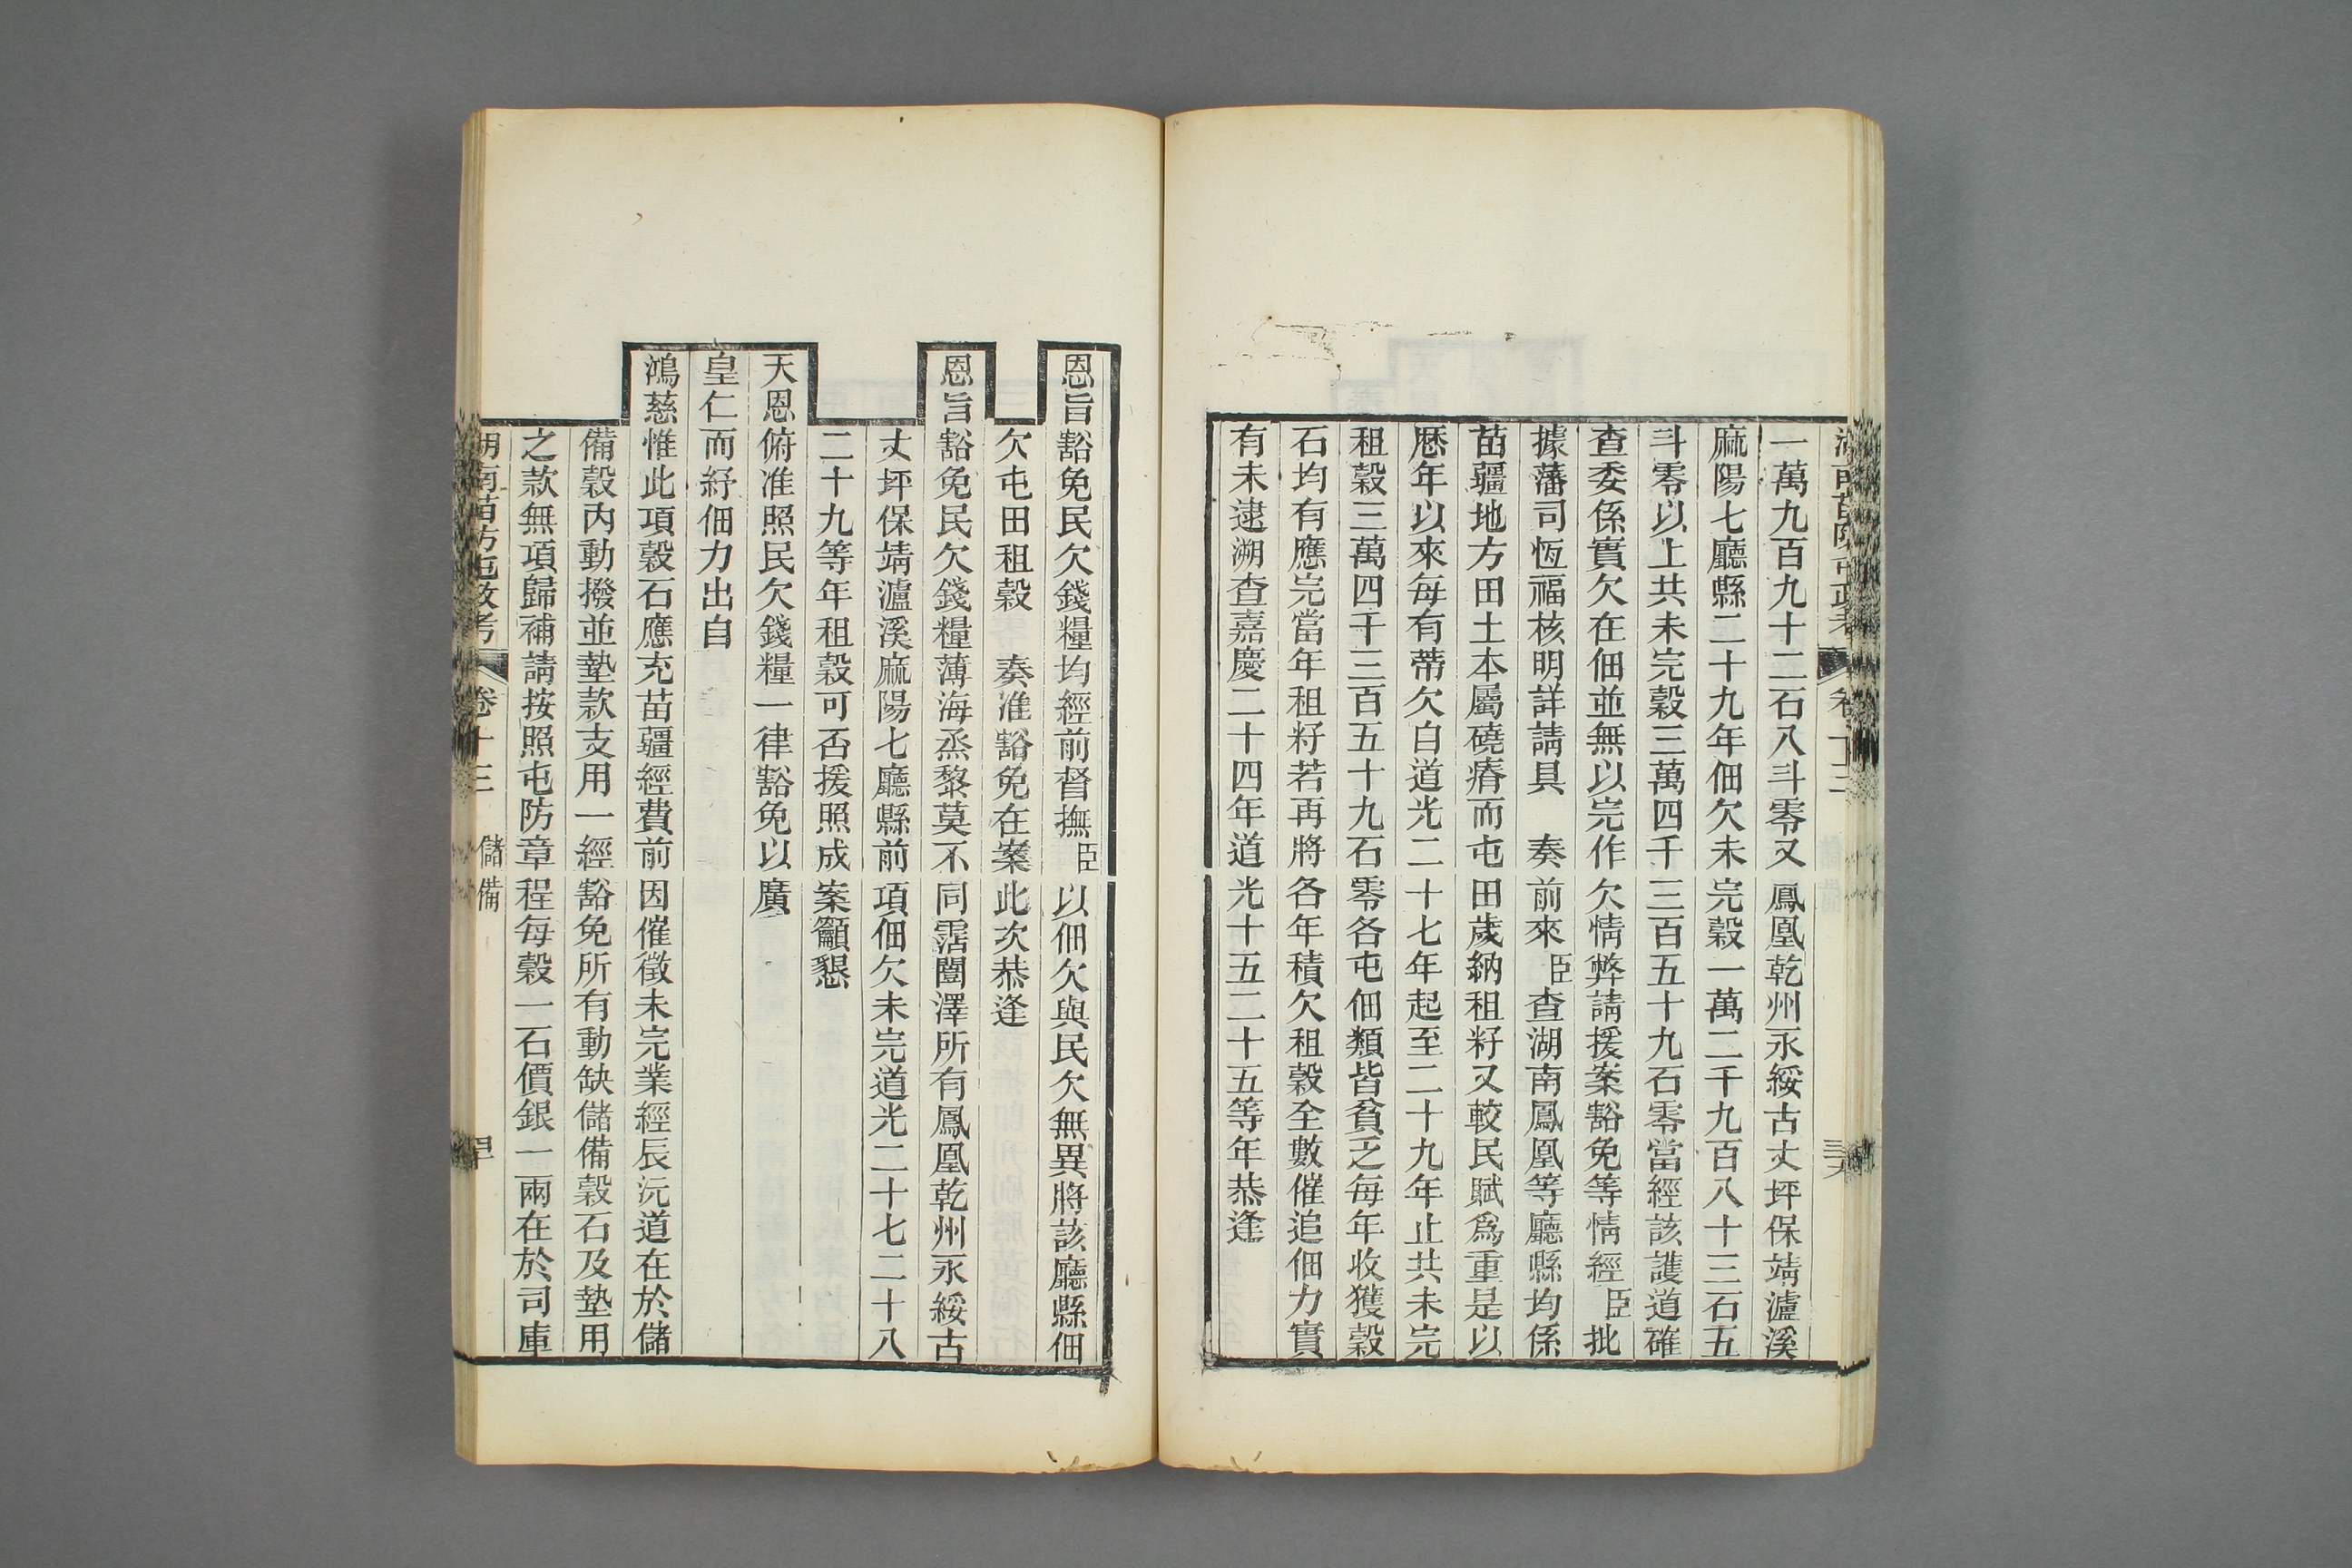 一萬九百九十二石八斗零又鳳凰乾州永綏古丈坪保靖瀘溪
麻陽七廳縣二十九年佃欠未完穀一萬二千九百八十三石五
斗零以上共未完穀三萬四千三百五十九石零當經該護道確
查委係實欠在佃並無以完作欠情弊請援案豁免等情經臣批
據藩司恆福核明詳請具　奏前來臣查湖南鳳凰等廳縣均係
苗疆地方田土本屬磽瘠而屯田歲納租籽又較民賦爲重是以
歷年以來每有蒂欠自道光二十七年起至二十九年止共未完
租穀三萬四千三百五十九石零各屯佃類皆貧乏每年收獲穀
石均有應完當年租籽若再將各年積欠租穀全數催追佃力實
有未逮溯查嘉慶二十四年道光十五二十五等年恭逢
恩旨豁免民欠錢糧均經前督撫臣以佃欠與民欠無異將該廳縣佃
欠屯田租穀　奏准豁免在案此次恭逢
恩旨豁免民欠錢糧薄海烝黎莫不同霑闓澤所有鳳凰乾州永綏古
丈坪保靖瀘溪麻陽七廳縣前項佃欠未完道光二十七二十八
二十九等年租穀可否援照成案籲懇
天恩俯准照民欠錢糧一律豁免以廣
皇仁而紓佃力出自
鴻慈惟此項穀石應充苗疆經費前因催徵未完業經辰沅道在於儲
備穀內動撥並墊款支用一經豁免所有動缺儲備穀石及墊用
之款無項歸補請按照屯防章程每穀一石價銀一兩在於司庫
湖南苗防屯政考　卷十三　儲備